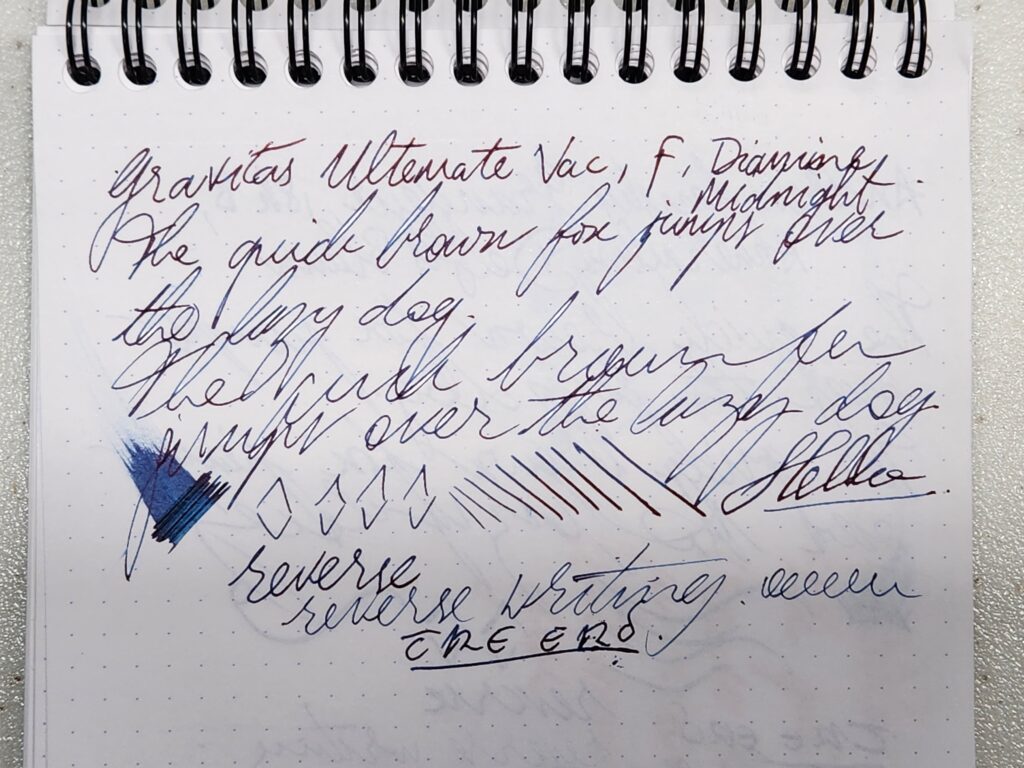 Gravitas Ultemate Vac, F, Diamine
Midnight.
The quick brown fox jumps over
the lazy dog.
The quick brown fox
jumps over the lazy dog.
Hello
reverse
reverse writing.